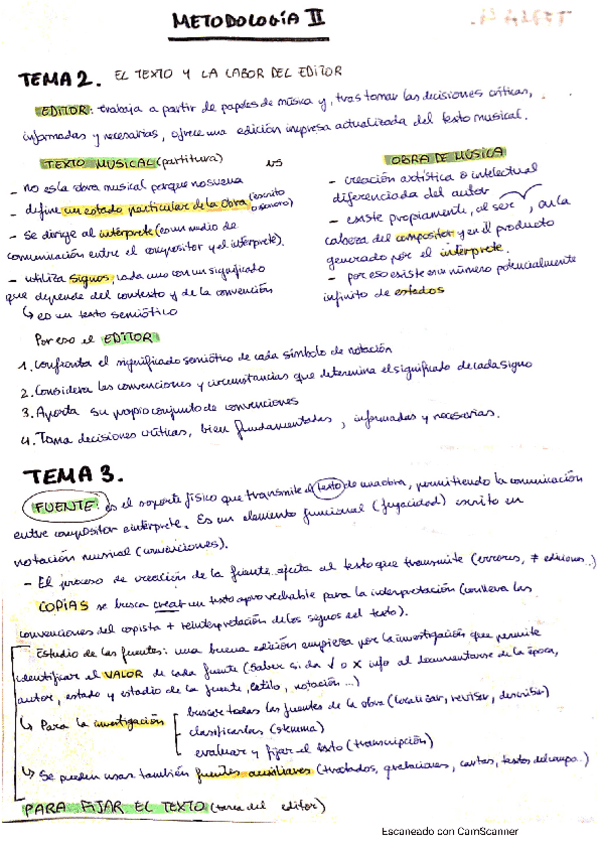 METODOLOGÍA II
TEMA 2. EL TEXTO Y LA LABOR DEL EDITOR
EDITOR: trabaja a partir de papeles de música y, tras tomar las decisiones críticas,
informadas y necesarias, ofrece una edición impresa actualizada del texto musical.
TEXTO MUSICAL (partitura) vs OBRA DE MÚSICA
- no es la obra musical porque no suena
- define un estado particular de la obra (escrito o sonoro)
- se dirige al intérprete (es un medio de
comunicación entre el compositor y el intérprete).
- utiliza signos, cada uno con un significado
que depende del contexto y de la convención
↳ es un texto semiótico
- creación artística o intelectual
diferenciada del autor
- existe propiamente, al ser, en la
cabeza del compositor y en el producto
generado por el intérprete.
- por eso existe en un número potencialmente
infinito de estados
Por eso el EDITOR
1. Confronta el significado semiótico de cada símbolo de notación
2. Considera las convenciones y circunstancias que determina el significado de cada signo
3. Aporta su propio conjunto de convenciones
4. Toma decisiones críticas, bien fundamentadas, informadas y necesarias.
TEMA 3.
FUENTE: es el soporte físico que transmite el texto de una obra, permitiendo la comunicación
entre compositor e intérprete. Es un elemento funcional (fugacidad) escrito en
notación musical (convenciones).
- El proceso de creación de la fuente afecta al texto que transmite (errores, ≠ ediciones..)
COPIAS se busca crear un texto aprovechable para la interpretación (conlleva las
convenciones del copista + reinterpretación de los signos del texto).
Estudio de las fuentes: una buena edición empieza por la investigación que permite
identificar el VALOR de cada fuente (saber si da √ o x info al documentarse de la época,
autor, estado y estadio de la fuente, estilo, notación...)
↳ Para la investigación
buscar todas las fuentes de la obra (localizar, revisar, describir)
clasificarlas (stemma)
evaluar y fijar el texto (transcripción)
↳ Se pueden usar también fuentes auxiliares (tratados, grabaciones, cartas, textos del campo..)
PARA FIJAR EL TEXTO (tarea del editor)
Escaneado con CamScanner